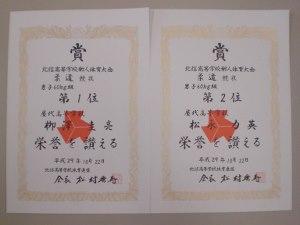 賞
北信高等学校新人体育大会
柔道 競技
男子60kg級
第1位
屋代高等学校
柳澤 圭亮
栄誉を讃える
平成29年10月22日
北信高等学校体育連盟
会長

賞
北信高等学校新人体育大会
柔道 競技
男子60kg級
第2位
屋代高等学校
松 英
栄誉を讃える
平成29年10月22日
北信高等学校体育連盟
会長